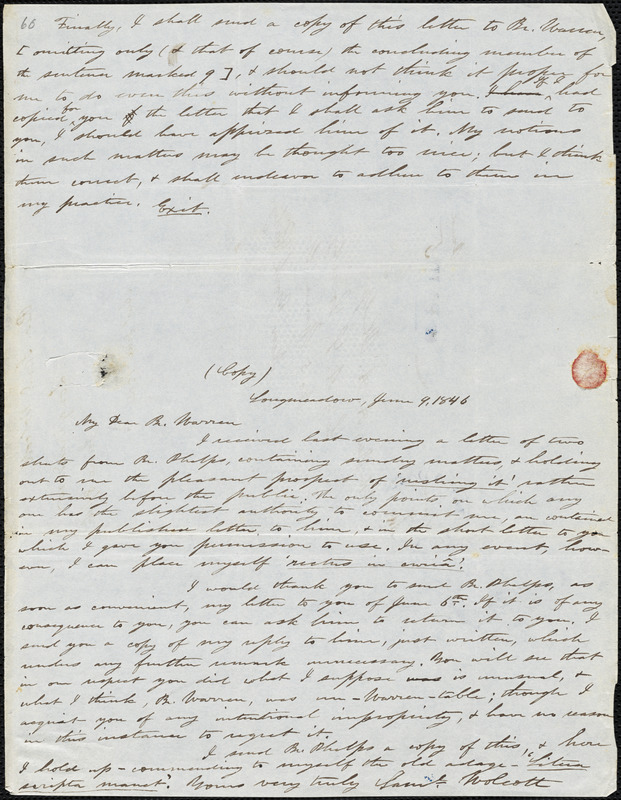 60 Finally, I shall send a copy of this letter to Br. Warren,
omitting only (& that of course) the concluding member of
the sentence marked 9], & should not think it proper for
me to do even this without informing you. If I had
copied to you the letter that I shall ask him to send to
you, I should have apprized him of it. My notions
in such matters may be thought too nice; but I think
them correct, & shall endeavor to adhere to them in
my practice. Exit.
(Copy)
Longmeadow, June 9, 1846
My Dear Br. Warren
I received last evening a letter of two
sheets from Br. Phelps, containing sundry matters, & holding
out to me the pleasant prospect of 'wishing it' rather
extensively before the public. The only points on which any
one has the slightest authority to commit me, are contained
in my published letter to him, & in the short letter to you
which I gave you permission to use. In any event, how-
ever, I can place myself rectus in curiâ!
I would thank you to send Br. Phelps, as
soon as convenient, my letter to you of June 6th. If it is of any
consequence to you, you can ask him to return it to you. I
send you a copy of my reply to him, just written, which
renders any further remark unnecessary. You will see that
in one respect you did what I suppose is unusual, &
what I think, Br. Warren, was un-Warren-table; though I
acquit you of any intentional impropriety, & have no reason
in this instance to regret it.
I send Br. Phelps a copy of this, & here
I hold up - commending to myself the old adage - "Litera
scripta manet". Yours very truly Saml. Wolcott